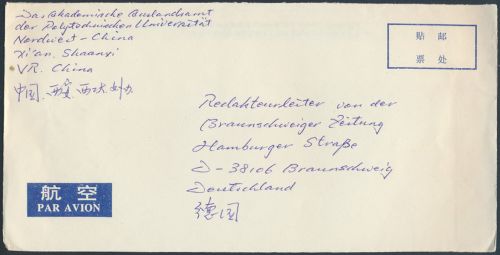 Das Akademische Auslandsamt
der Polytechnischen Universität
Nordwest-China
Xi'an, Shaanxi
VR. China
中国, 西安, 西工大外办
贴 邮
票 处
Redakteurleiter von der
Braunschweiger Zeitung
Hamburger Straße
D-38106 Braunschweig
Deutschland
德国
航空
PAR AVION